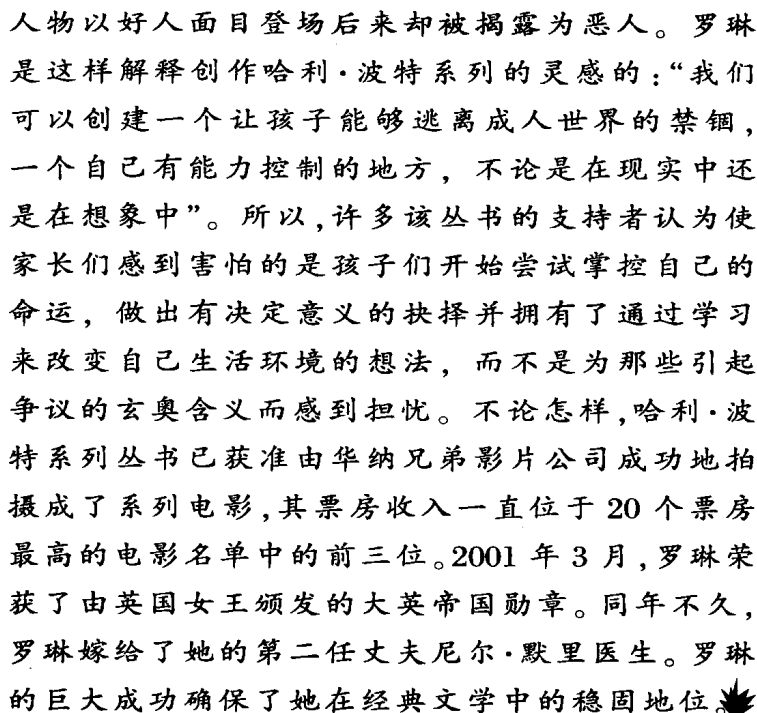 人物以好人面目登场后来却被揭露为恶人。罗琳
是这样解释创作哈利·波特系列的灵感的:“我们
可以创建一个让孩子能够逃离成人世界的禁锢,
一个自己有能力控制的地方,不论是在现实中还
是在想象中”。所以,许多该丛书的支持者认为使
家长们感到害怕的是孩子们开始尝试掌控自己的
命运,做出有决定意义的抉择并拥有了通过学习
来改变自己生活环境的想法,而不是为那些引起
争议的玄奥含义而感到担忧。不论怎样,哈利·波
特系列丛书已获准由华纳兄弟影片公司成功地拍
摄成了系列电影,其票房收入一直位于 20 个票房
最高的电影名单中的前三位。2001 年 3 月,罗琳荣
获了由英国女王颁发的大英帝国勋章。同年不久,
罗琳嫁给了她的第二任丈夫尼尔·默里医生。罗琳
的巨大成功确保了她在经典文学中的稳固地位。